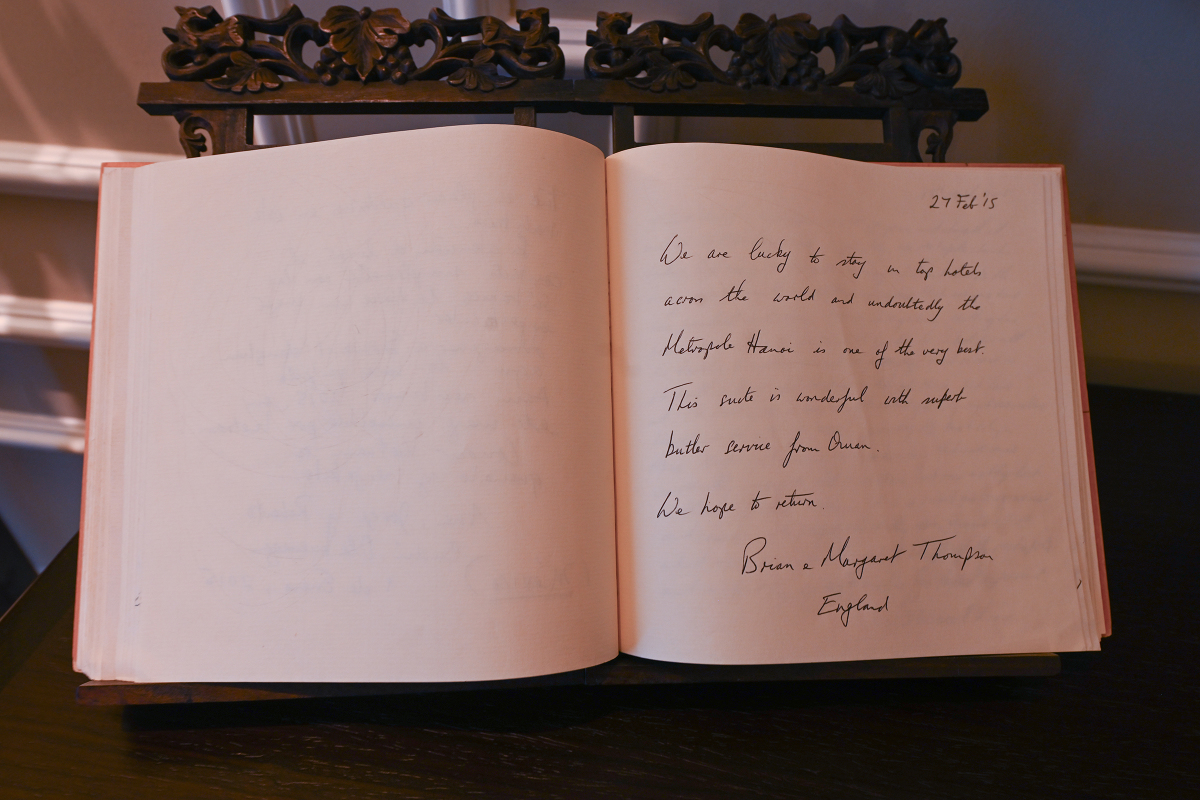 27 Feb '15
We are lucky to stay in top hotels
across the world and undoubtedly the
Metropole Hanoi is one of the very best.
This suite is wonderful with superb
butler service from
We hope to return.
Brian & Margaret Thompson
England